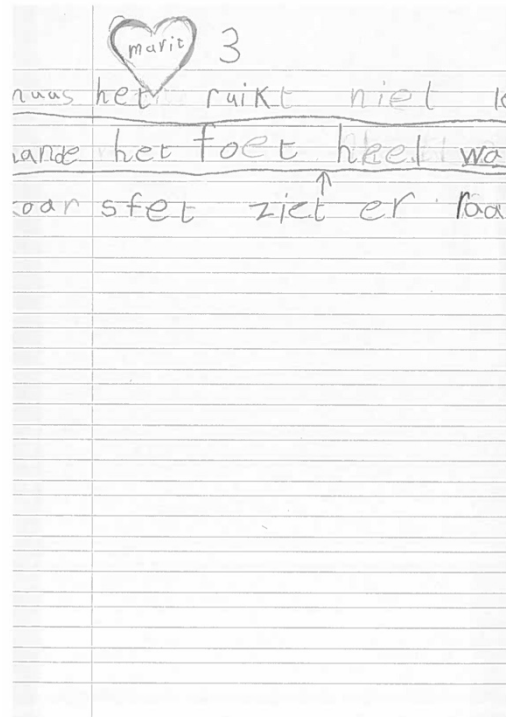 marit 3
het ruikt niet
hande het foet heel wa
sfet ziet er raa